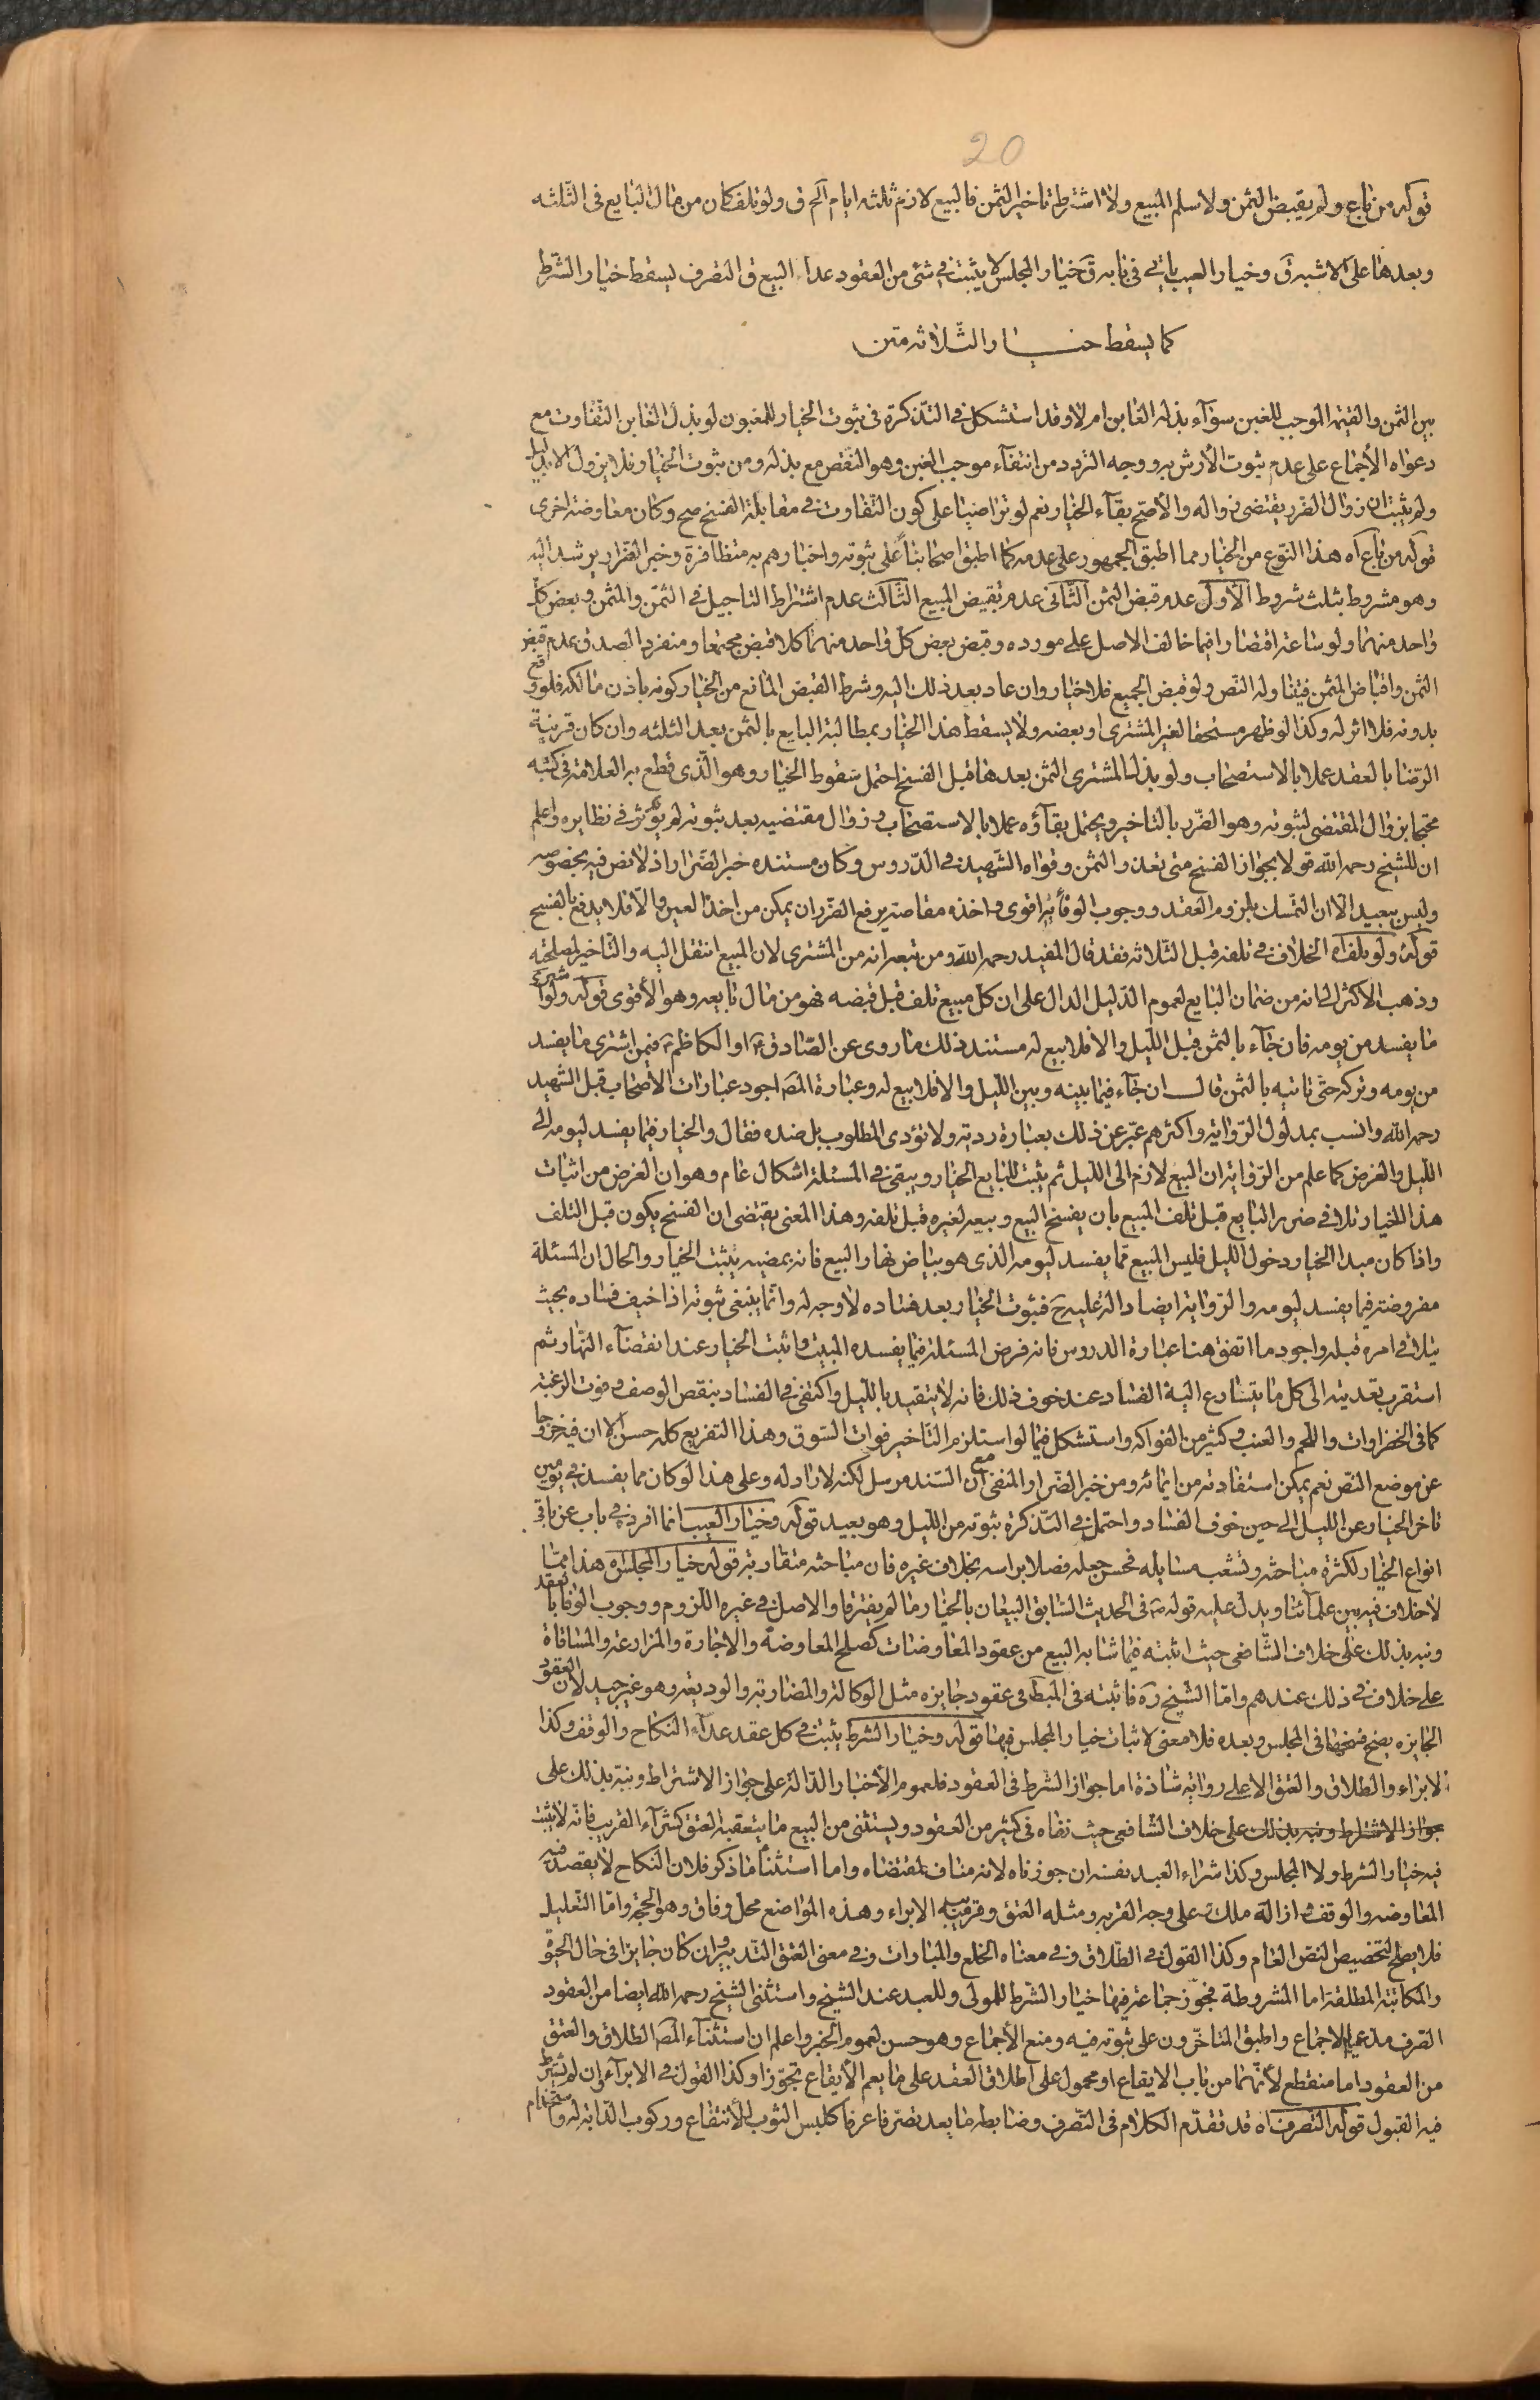 20
قوله من باع ولم يقبض الثمن ولا سلم المبيع ولا اشترط تاخير الثمن فالبيع لازم ثلثه ايام آلخ ق ولو تلف كان من مال البايع فى الثّلثه
وبعدها على الاشبه ق وخيار العيب ياتى فى بابه ق خيار المجلس لا يثبت فى شئ من العقود عدا البيع ق التصرف يسقط خيار الشّرط
كما يسقط خيار الثّلاثه متن
بين الثمن والقيمة الموجب للغبن سوآء بذله الغابن ام لا وقد استشكل فى التذكرة فى ثبوت الخيار للمغبون لو بذل الغابن التّفاوت مع
دعواه الأجماع على عدم ثبوت الأرش به ووجه التردد من انتفآء موجب الغبن وهو النّقص مع بذله ومن ثبوت الخيار فلا يزول الا بدليل
ولم يثبت ان زوال الضرر يقتضى زواله والأصح بقآء الخيار نعم لو تراضيا على كون التّفاوت فى مقابلة الفسخ صح وكان معاوضة اخرى
قوله من باع آه هذا النّوع من الخيار مما اطبق الجمهور على عدمه كما اطبق اصحابنا على ثبوته واخبارهم به متظافرة وخبر الضّرار يرشد اليه
وهو مشروط بثلث شروط الأول عدم قبض الثمن الثّانى عدم تقبيض المبيع الثّالث عدم اشتراط التاجيل فى الثمّن والمثمن وبعض كلّ
واحد منهما ولو ساعة اقتصارا فيما خالف الاصل على مورده وقبض بعض كلّ واحد منهما كلا قبض مجتمعا ومنفردا لصدق عدم قبض
الثمن واقباض المثمن فيتناوله النّص ولو قبض الجميع فلا خيار وان عاد بعد ذلك اليه وشرط القبض المانع من الخيار كونه باذن مالكه فلو وقع
بدونه فلا اثر له وكذا لو ظهر مستحقا لغير المشترى او بعضه ولا يسقط هذا الخيار بمطالبة البايع بالثمن بعد الثلثه وان كان قرينة
الرّضا بالعقد عملا بالاستصحاب ولو بذل المشترى الثمن بعدها قبل الفسخ احتمل سقوط الخيار وهو الّذى قطع به العلامة فى كتبه
محتجا بزوال المقتضى لثبوته وهو الضّرر بالتاخير ويحتمل بقآؤه عملا بالاستصحاب وزوال مقتضيه بعد ثبوته لم يؤثر فى نظايره واعلم
ان للشيخ رحمه اللّه قولا بجواز الفسخ متى تعذر الثمن وقواه الشّهيد فى الدّروس وكان مستنده خبر الضّرار اذ لا نص فيه بخصوصه
وليس ببعيد الّا ان التمسك بلزوم العقد ووجوب الوفآء به اقوى واخذه مقاصّة يرفع الضّرر ان يمكن من اخذ العين والّا فلا يدفع بالفسخ
قوله ولو تلف آه الخلاف فى تلفه قبل الثّلاثه فقد قال المفيد رحمه اللّه ومن تبعه انه من المشترى لان المبيع انتقل اليه والتّاخير لمصلحته
وذهب الاكثر الى انه من ضمان البايع لعموم الدّليل الدال على ان كلّ مبيع تلف قبل قبضه فهو من مال بايعه وهو الأقوى قوله ولو اشترى
ما يفسد من يومه فان جآء بالثمن قبل اللّيل والا فلا بيع له مستند ذلك ما روى عن الصّادق ع او الكاظم ع فيمن اشترى ما يفسد
من يومه وتركه حتّى ياتيه بالثمن قال ان جآء فيما بينه وبين اللّيل والا فلا بيع له وعبارة المصَ اجود عبارات الأصحاب قبل الشهيد
رحمه اللّه وانسب بمدلول الرّواية واكثرهم عبّر عن ذلك بعبارة ردية ولا تؤدى المطلوب بل ضده فقال والخيار فيما يفسد ليومه الى
اللّيل والغرض كما علم من الرّواية ان البيع لازم الى اللّيل ثم يثبت للبايع الخيار ويبقى فى المسئلة اشكال عام وهو ان الغرض من اثبات
هذا الخيار تلافى ضرر البايع قبل تلف المبيع بان يفسخ البيع ويبيعه لغيره قبل تلفه وهذا المعنى يقتضى ان الفسخ يكون قبل التلف
واذا كان مبدا الخيار دخول الليل فليس المبيع ممّا يفسد ليومه الذى هو بياض نهار البيع فانه بمضيه يثبت الخيار والحال ان المسئلة
مفروضة فيما يفسد ليومه والرّواية ايضا دالة عليه حَ فثبوت الخيار بعد فساده لا وجه له وانّما ينبغى ثبوته اذا خيف فساده بحيث
يتلافى امره قبله واجود ما اتفق هنا عبارة الدروس فانه فرض المسئلة فيما يفسده المبيت واثبت الخيار عند انقضآء النّهار ثم
استقرب تعديته الى كل ما يتسارع اليه الفساد عند خوف ذلك فانه لا يتقيد بالليل واكتفى فى الفساد بنقص الوصف وفوت الرّغبة
كما فى الخضراوات واللّحم والعنب وكثير من الفواكه واستشكل فيما لو استلزم التّاخير فوات السّوق وهذا التفريع كله حسن الا ان فيه خروجا
عن موضع النّص نعم يمكن استفادته من ايمائه ومن خبر الضّرار المنفى مع ان السّند مرسل لكنه لا راد له وعلى هذا لو كان مما يفسد فى يومين
تاخر الخيار عن الليل الى حين خوف الفساد واحتمل فى التّذكرة ثبوته من الليل وهو بعيد قوله وخيار العيب انما افرد فى باب عن باقى
انواع الخيار لكثرة مباحثه وتشعب مسايله فحسن جعله فصلا براسه بخلاف غيره فان مباحثه متقاربة قوله خيار المجلس آه هذا ممّا
لا خلاف فيه بين علمآئنا ويدل عليه قوله صَ فى الحديث السّابق البيّعان بالخيار ما لم يفترقا والاصل فى غيره اللّزوم ووجوب الوفا بالعقد
ونبه بذلك على خلاف الشّافعى حيث اثبته فيما شابه البيع من عقود المعاوضات كصلح المعاوضة والاجارة والمزارعة والمساقاة
على خلاف فى ذلك عندهم وامّا الشّيخ رَه فاثبته فى المَبْط فى عقود جايزه مثل الوكالة والمضاربة والوديعة وهو غير جيد لان العقود
الجايزه يصح فسخها فى المجلس وبعده فلا معنى لاثبات خيار المجلس فيها قوله وخيار الشرط يثبت فى كل عقد عدآء النكاح والوقف وكذا
الابراء والطلاق والعتق الا على رواية شاذة اما جواز الشّرط فى العقود فلعموم الأخبار الدّالة على جواز الاشتراط ونبّه بذلك على
جواز الاشتراط ونبه بذلك على خلاف الشّافعى حيث نفاه فى كثير من العقود ويستثنى من البيع ما يتعقبه العتق كشرآء القريب فانّه لا يثبت
فيه خيار الشرط ولا المجلس وكذا شراء العبد نفسه ان جوزناه لانه مناف لمقتضاه واما استثنآ ما ذكر فلان النكاح لا يقصد فيه
المعاوضة والوقف ازالة ملك على وجه القربة ومثله العتق وقريب منه الابراء وهذه المواضع محلّ وفاق وهو الحجّة وامّا التّعليل
فلا يصلح لتخصيص النصّ العام وكذا القول فى الطّلاق وفى معناه الخلع والمبارات وفى معنى العتق التّدبير وان كان جايزا فى حال الحيوة
والمكاتبة المطلقة اما المشروطة فجوّز جماعة فيها خيار الشّرط للمولى وللعبد عند الشيخ واستثنى الشيخ رحمه اللّه ايضا من العقود
الصّرف مدعيا الاجماع واطبق المتاخّرون على ثبوته فيه ومنع الأجماع وهو حسن لعموم الخبر واعلم ان استثنآء المصَ الطلاق والعتق
من العقود اما منقطع لأنّهما من باب الايقاع او محمول على اطلاق العقد على ما يعم الأيقاع تجوّزا وكذا القول فى الابرآء ان لم نشترط
فيه القبول قوله التّصرف آه قد تقدّم الكلام فى التّصرف وضابطه ما يعد تصرّفا عرفا كلبس الثوب للأنتفاع وركوب الدّابة له واستخدام